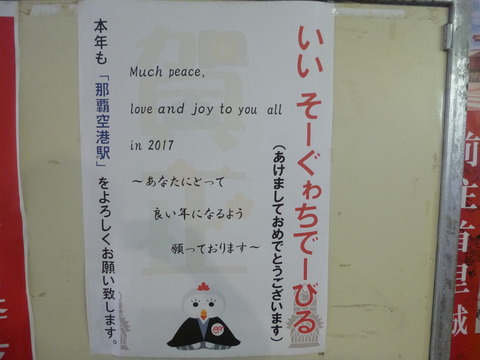 いい そーぐゎちでーびる
(あけましておめでとうございます)
Much peace,
love and joy to you all
in 2017
~あなたにとって
良い年になるよう
願っております~
本年も「那覇空港駅」をよろしくお願い致します。
賀正
前
主
首里城